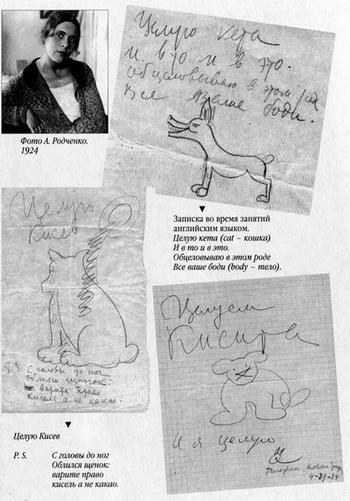 Фото А. Родченко.
1924
Целую кета
и в то и в это.
обцеловываю в этом роде
Все ваше боди.
Записка во время занятий
английским языком.
Целую кета (cat – кошка)
И в то и в это.
Обцеловываю в этом роде
Все ваше боди (body – тело).
Целую
Кисев
P.S. С головы до ног
облился щенок:
варите право
кисель а не какао.
Целую Кисев
P. S. С головы до ног
Облился щенок:
варите право
кисель а не какао.
Целуем
Кисита
И я целую